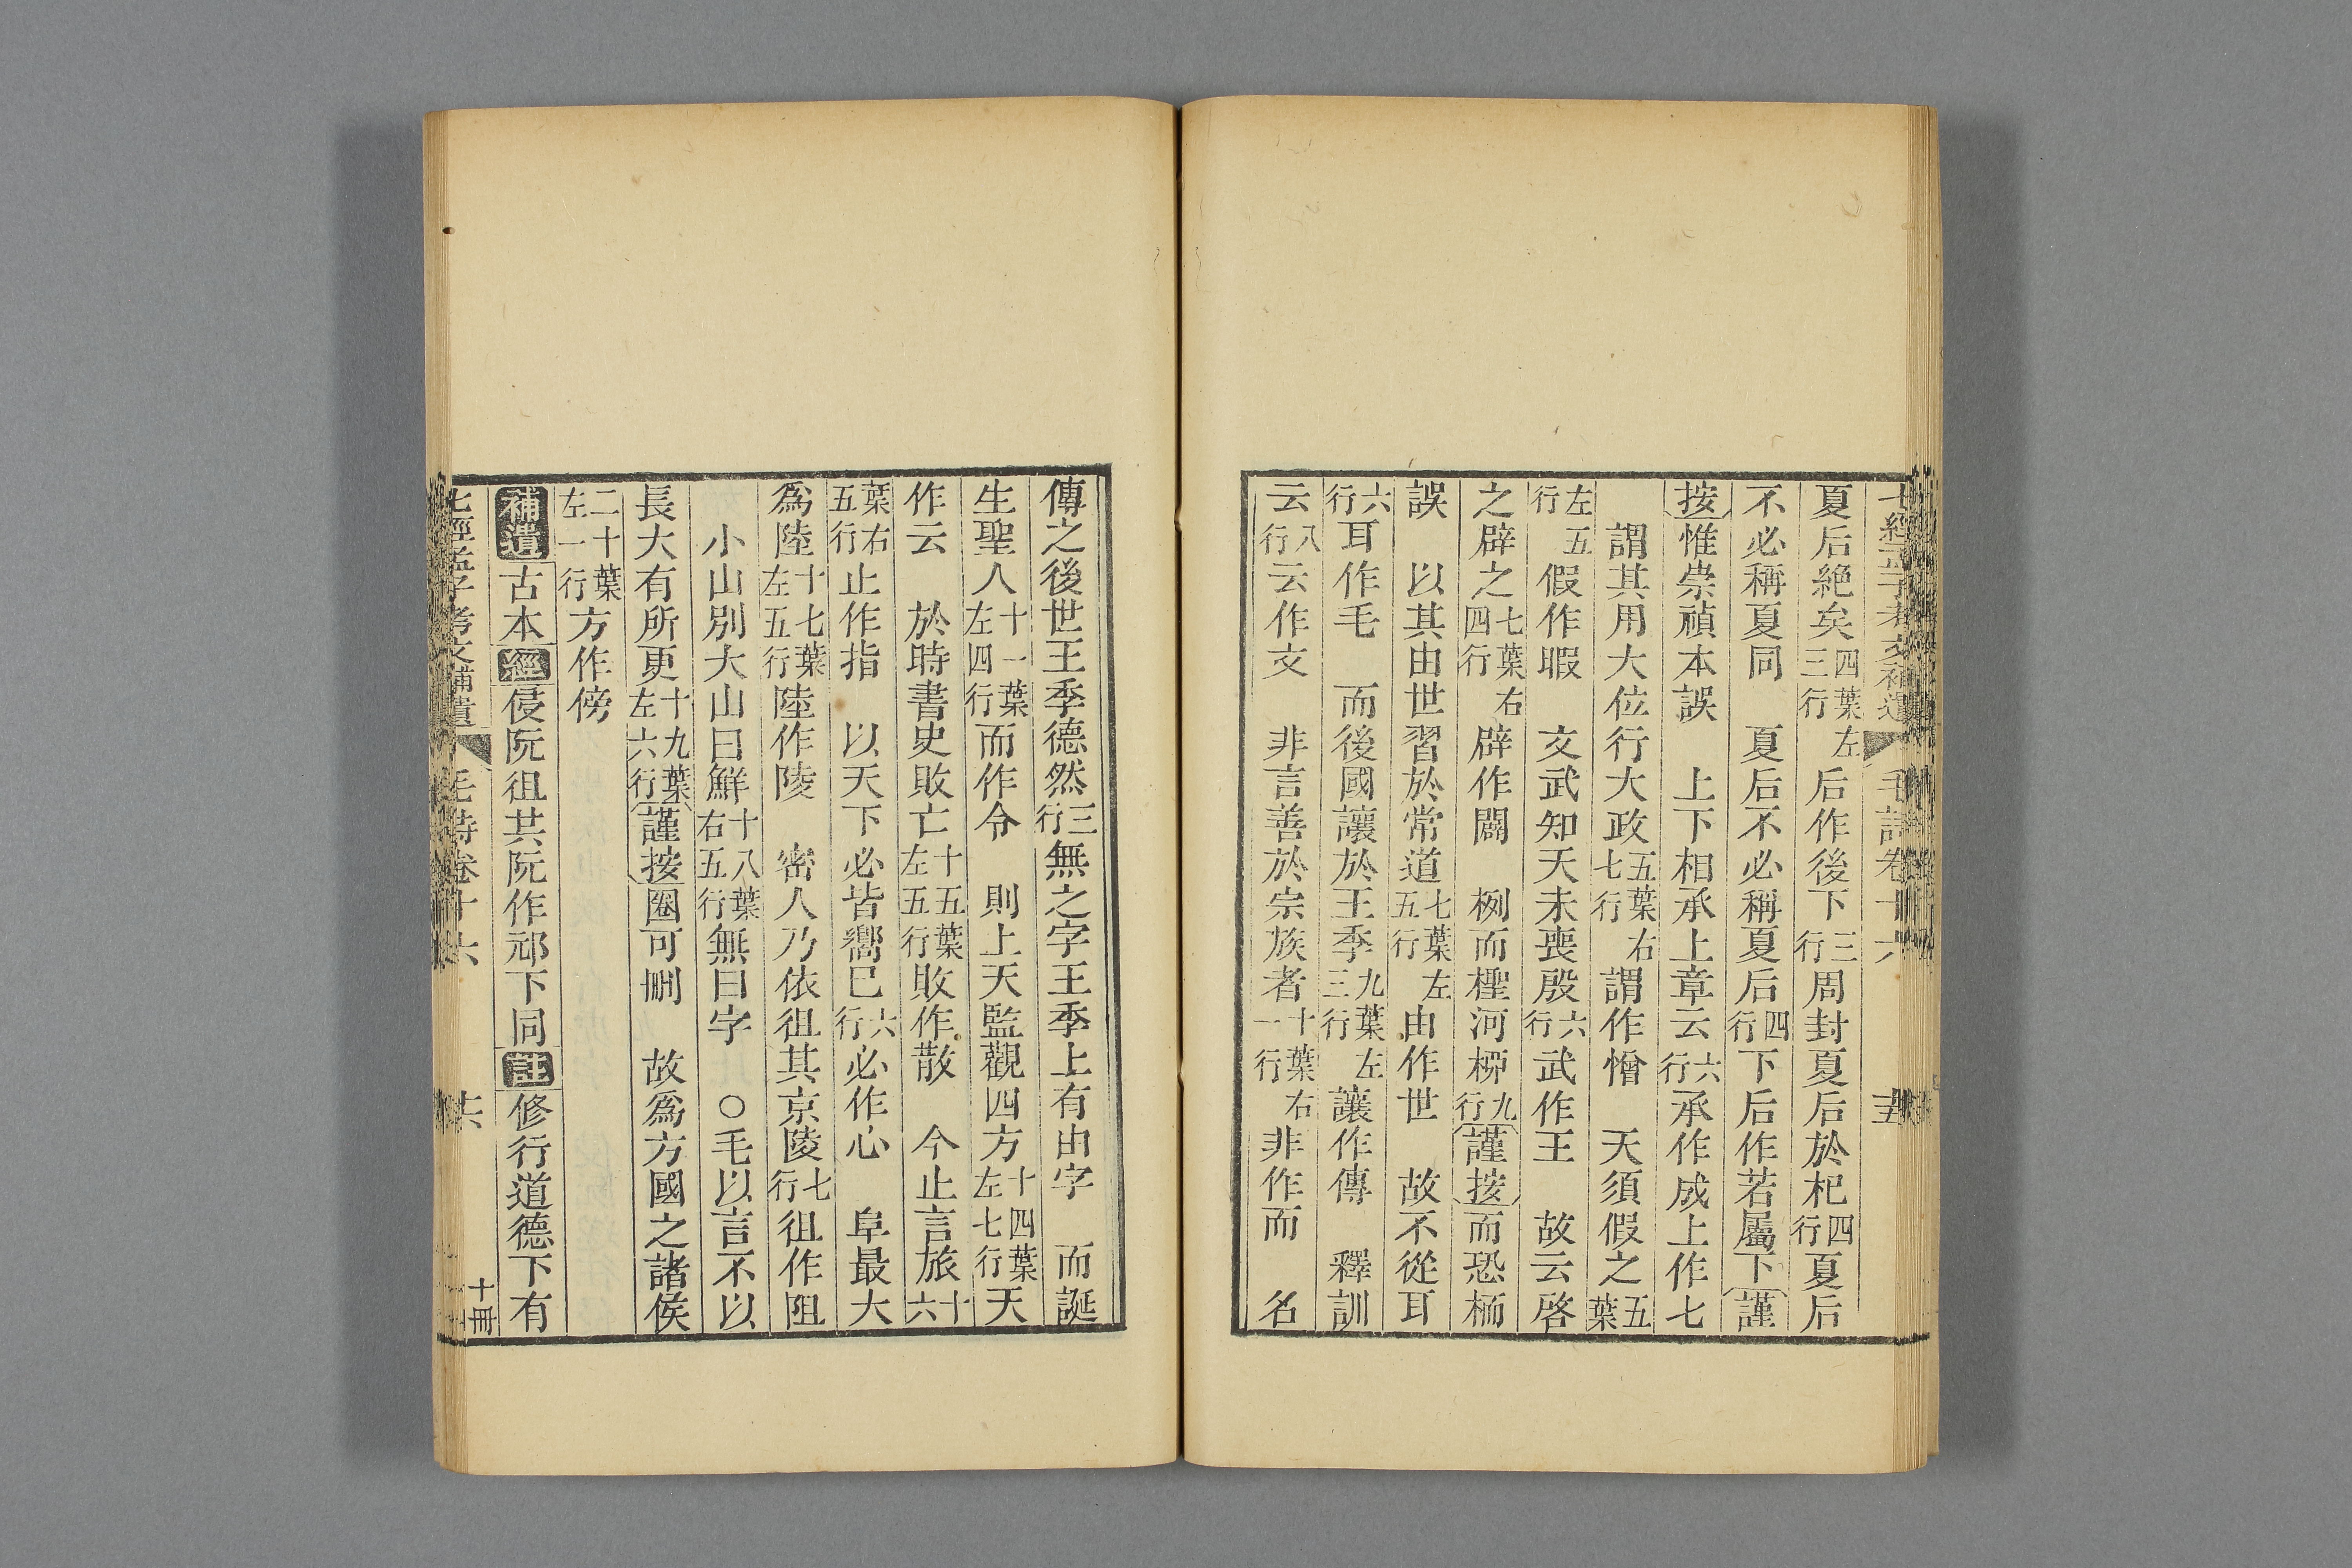 夏后絶矣四葉左三行 后作後下三行周封夏后於杞四行夏后
不必稱夏同 夏后不必稱夏后四行下后作若屬下謹
按惟崇禎本誤 上下相承上章云六行承作成上作七
謂其用大位行大政五葉右七行謂作憎 天須假之五葉
左五行假作暇 文武知天未喪殷六行武作王 故云啓
之辟之七葉右四行辟作闢 栵而檉河栁九行謹按而恐栭
誤 以其由世習於常道七葉左五行由作世 故不從耳
六行耳作毛 而後國讓於王季九葉左三行讓作傳 釋訓
云八行云作文 非言善於宗族者十葉右一行非作而 名
傳之後世王季德然三行無之字王季上有由字 而誕
生聖人十一葉左四行而作令 則上天監觀四方十四葉左七行天
作云 於時書史敗亡十五葉左五行敗作散 今止言旅十六
葉右五行止作指 以天下必皆嚮已六行必作心 阜最大
爲陸十七葉左五行陸作陵 密人乃依徂其京陵七行徂作阻
小山別大山曰鮮十八葉右五行無曰字 ○毛以言不以
長大有所更十九葉左六行謹按圈可刪 故爲方國之諸侯
二十葉左一行方作傍
補遺古本經侵阮徂共阮作邧下同註修行道德下有
毛詩卷十六
十冊